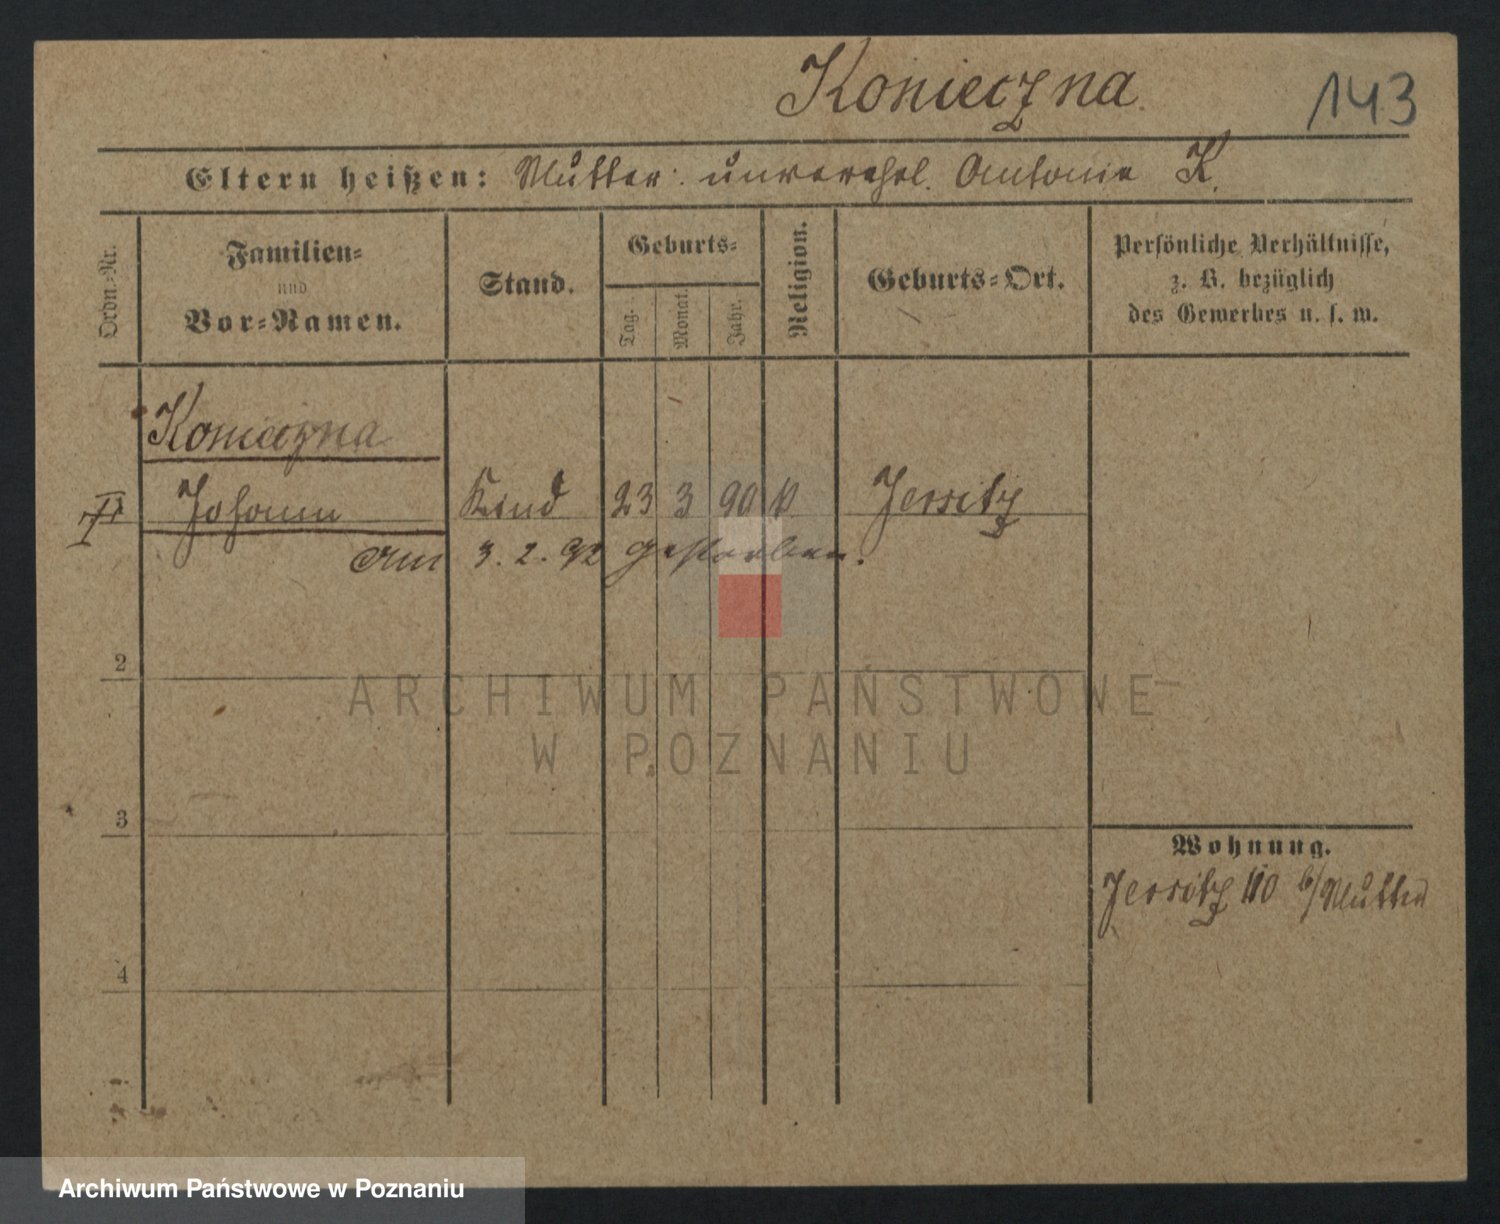 Konieczna 143
Eltern heißen: Mutter: unverehel. Antonie K.
Ordn.-Nr.
Familien-
und
Vor-Namen.
Stand.
Geburts-
Tag.
Monat.
Jahr.
Religion.
Geburts-Ort.
Persönliche Verhältnisse,
z. B. bezüglich
des Gewerbes u. s. w.
Konieczna
Johann Kind 23 3 90 Jersitz
Am 3. 2. 92 gestorben.
2
3
4
Wohnung.
Jersitz 110 b/Mutter
ARCHIWUM PAŃSTWOWE
W POZNANIU
Archiwum Państwowe w Poznaniu